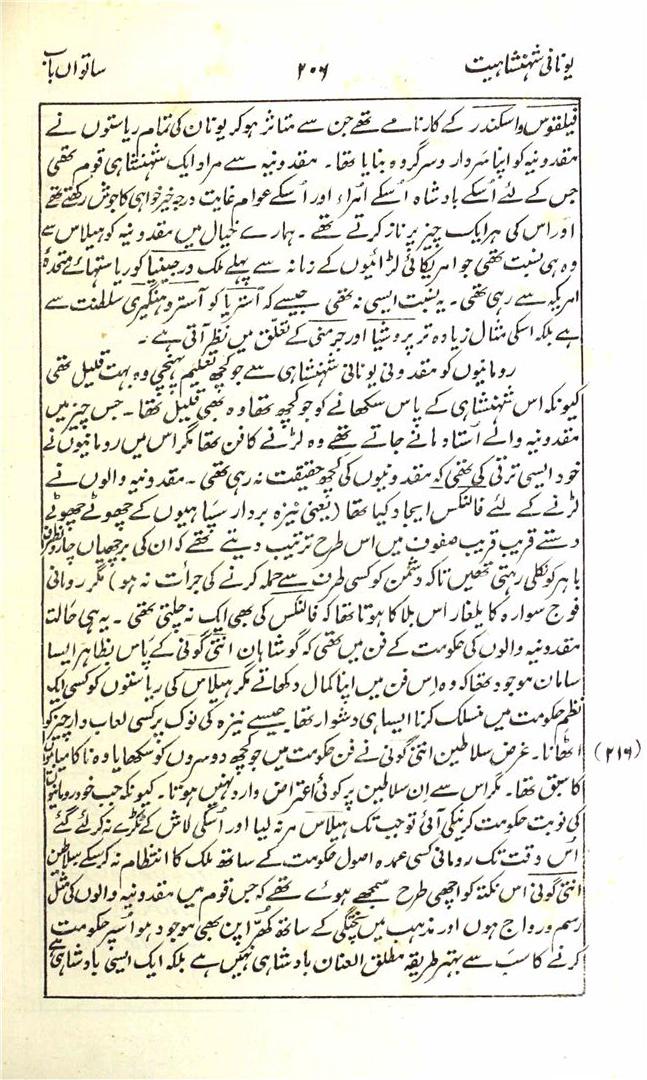 یونانی شہنشاہیت ۲۰۶ ساتواں باب
فیلقوس و اسکندر کے کارنامے تھے جن سے متاثر ہوکر یونان کی تمام ریاستوں نے
مقدونیہ کو اپنا سردار و سرگروہ بنایا تھا۔ مقدونیہ سے مراد ایک شہنشاہی قوم تھی
جس کے لئے اُسکے بادشاہ اُسکے اُمراء اور اُسکے عوام غایت درجہ خیرخواہی کا جوش رکھتے تھے
اور اس کی ہر ایک چیز پر ناز کرتے تھے۔ ہمارے خیال میں مقدونیہ کو ہیلاس سے
وہ ہی نسبت تھی جو امریکائی لڑائیوں کے زمانہ سے پہلے ملک ورجینیا کو ریاستہائے متحدۂ
امریکہ سے رہی تھی۔ یہ نسبت ایسی نہ تھی جیسے کہ آسٹریا کو آسٹرو ہنگیری سلطنت سے
ہے بلکہ اسکی مثال زیادہ تر پروشیا اور جرمنی کے تعلق میں نظر آتی ہے۔
رومانیوں کو مقدونی یونانی شہنشاہی سے جو کچھ تعلیم پہنچی وہ بہت قلیل تھی
کیونکہ اس شہنشاہی کے پاس سکھانے کو جو کچھ تھا وہ بھی قلیل تھا۔ جس چیز میں
مقدونیہ والے اُستاد مانے جاتے تھے وہ لڑنے کا فن تھا مگر اس میں رومانیوں نے
خود ایسی ترقی کی تھی کہ مقدونیوں کی کچھ حقیقت نہ رہی تھی۔ مقدونیہ والوں نے
لڑنے کے لئے فالنکس ایجاد کیا تھا (یعنی نیزہ بردار سپاہیوں کے چھوٹے چھوٹے
دستے قریب قریب صفوف میں اس طرح ترتیب دیتے تھے کہ ان کی برچھیاں چاروں طرف
باہر کو نکلی رہتی تھیں تاکہ دشمن کو کسی طرف سے حملہ کرنے کی جرأت نہ ہو) مگر رومانی
فوج سوارہ کا یلغار اس بلا کا ہوتا تھا کہ فالنکس کی بھی ایک نہ چلتی تھی۔ یہ ہی حالت
مقدونیہ والوں کی حکومت کے فن میں تھی کہ گو شاہان انتی گونی کے پاس بظاہر ایسا
سامان موجود تھا کہ وہ اس فن میں اپنا کمال دکھاتے مگر ہیلاس کی ریاستوں کو کسی ایک
نظم حکومت میں منسلک کرنا ایسا ہی دشوار تھا جیسے نیزہ کی نوک پر کسی لعاب دار چیز کو
اُٹھانا۔ غرض سلاطین انتی گونی نے فن حکومت میں جو کچھ دوسروں کو سکھایا وہ ناکامیابیوں (۲۱۶)
کا سبق تھا۔ مگر اس سے اِن سلاطین پر کوئی اعتراض وارد نہیں ہوتا۔ کیونکہ جب خود رومانیوں
کی نوبت حکومت کرنیکی آئی تو جب تک ہیلاس مر نہ لیا اور اُسکی لاش کے ٹکڑے نہ کر لئے گئے
اُس وقت تک رومانی کسی عمدہ اصول حکومت کے ساتھ ملک کا انتظام نہ کرسکے سلاطین
انتی گونی اس نکتہ کو اچھی طرح سمجھے ہوئے تھے کہ جس قوم میں مقدونیہ والوں کی مثل
رسم و رواج ہوں اور مذہب میں پختگی کے ساتھ کھرا پن بھی موجود ہو اُسپر حکومت
کرنے کا سب سے بہتر طریقہ مطلق العنان بادشاہی نہیں ہے بلکہ ایک ایسی بادشاہی ہے